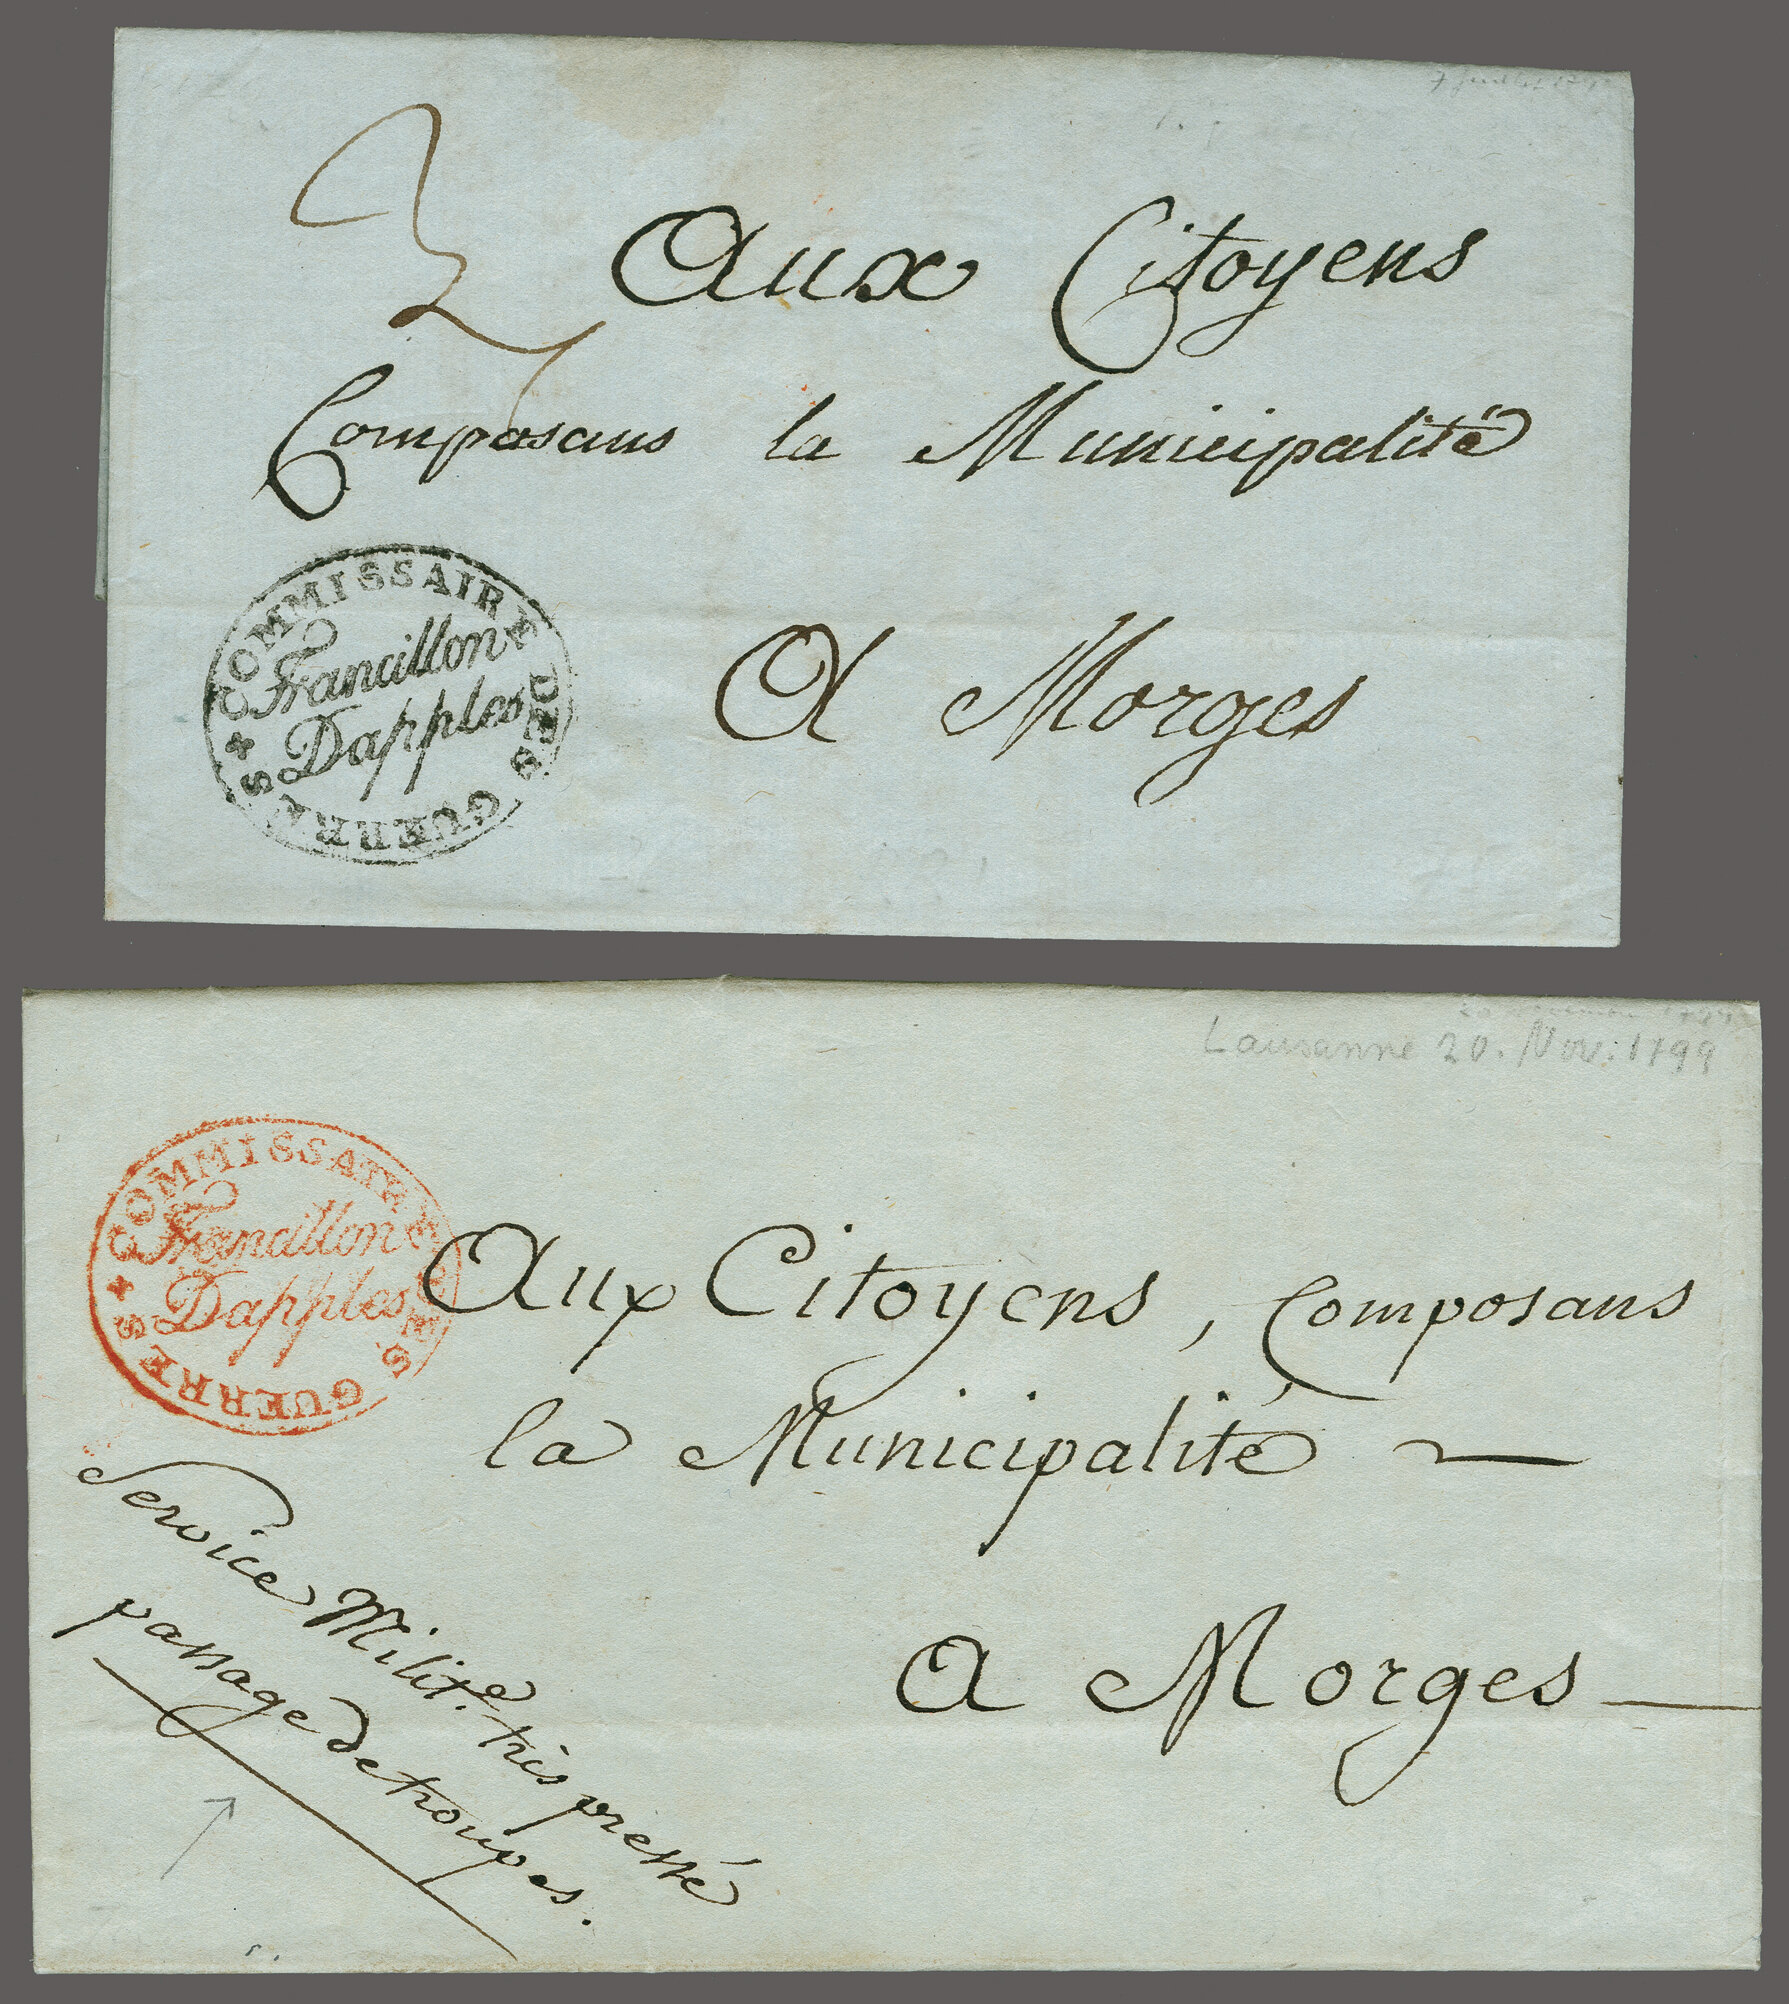 3
Aux Citoyens
Composans la Municipalité
A Morges
COMMISSAIRE DES GUERRES
Francillon
Dapples
Lausanne 20. Nov. 1799
COMMISSAIRE DES GUERRES
Francillon
Dapples
Aux Citoyens, Composans
la Municipalité
a Morges
Service Milit.e très pressé
passage de troupes.